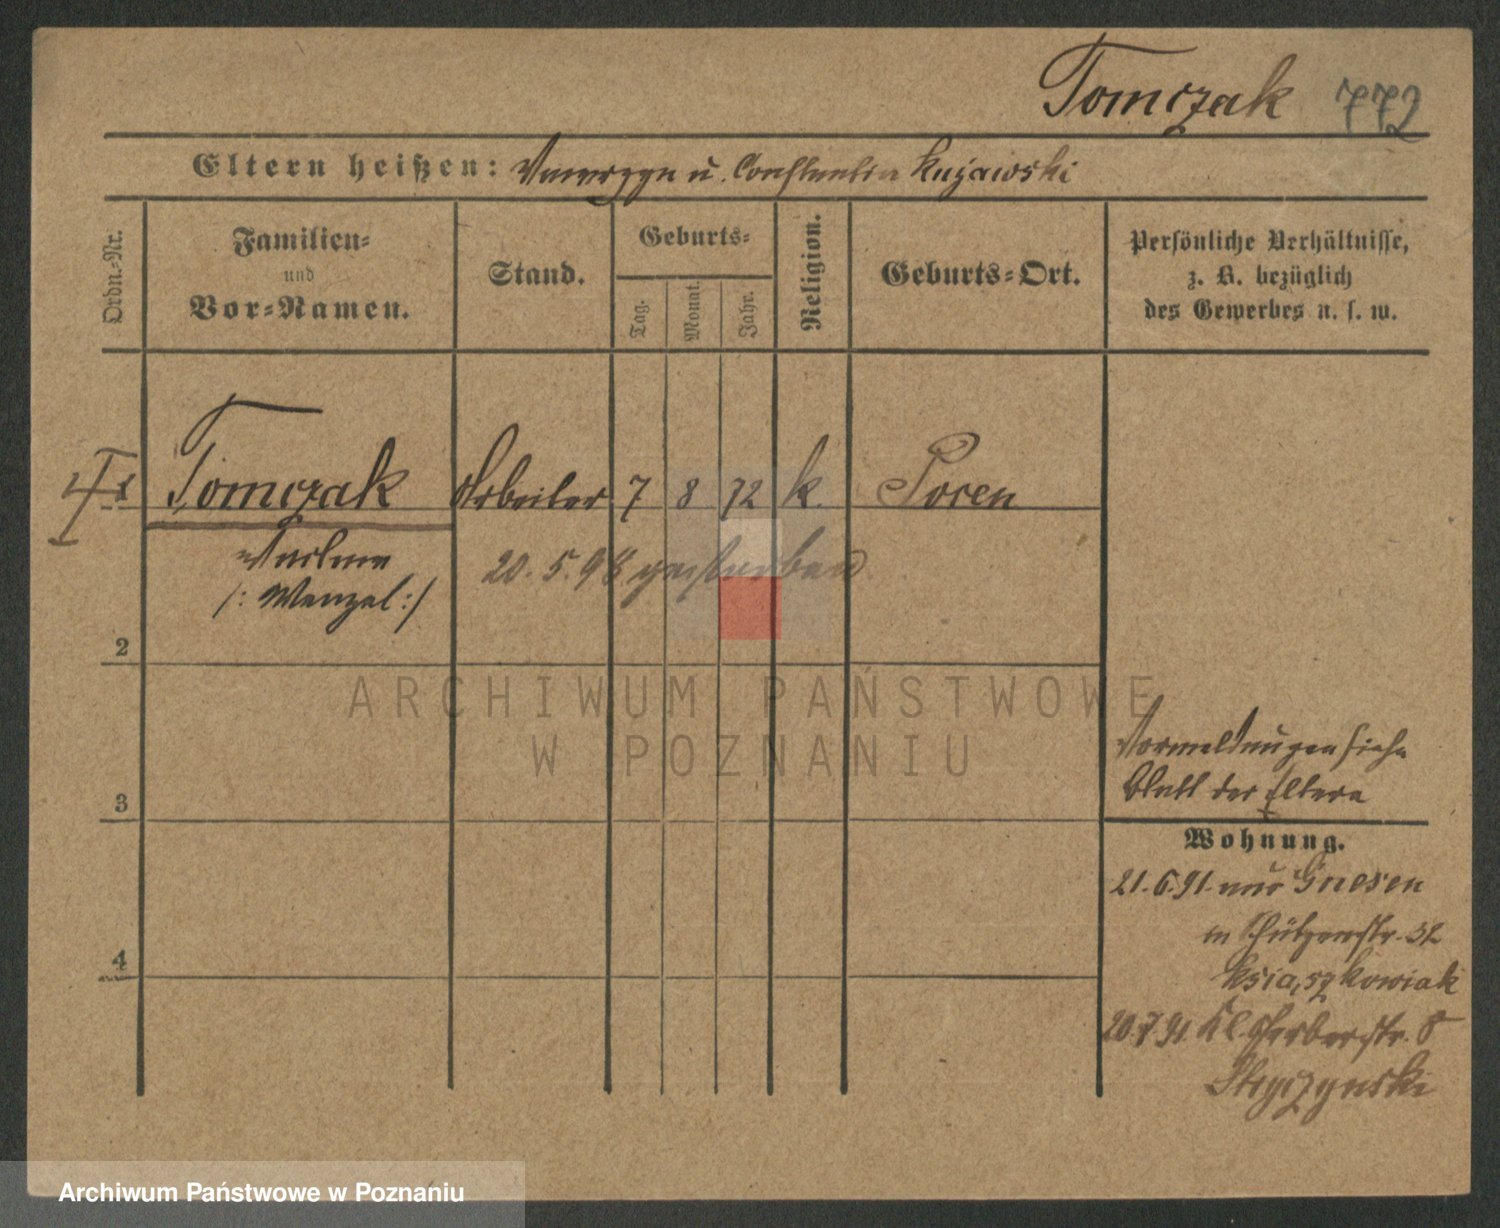 Tomczak 772
Eltern heißen: Wawrzyn u. Constantia Kujawski
Ordn.-Nr.
Familien-
und
Vor-Namen.
Stand.
Geburts-
Tag.
Monat.
Jahr.
Religion.
Geburts-Ort.
Persönliche Verhältnisse,
z. B. bezüglich
des Gewerbes u. s. w.
1
Tomczak Arbeiter 7 8 72 k. Posen
/: Wenzel :/
20. 5. 98 gestorben
2
ARCHIWUM PAŃSTWOWE
W POZNANIU
Vormeldungen siehe
Blatt der Eltern
3
Wohnung.
21.6.91. aus Gnesen
in Schützenstr. 32
Ksiaszkowiak
4
20.7.91. Kl. Gerberstr. 8
Stryczynski
Archiwum Państwowe w Poznaniu